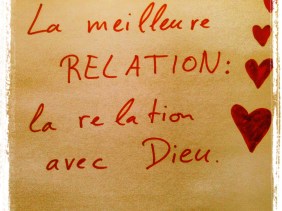 La meilleure
RELATION:
la relation
avec Dieu.